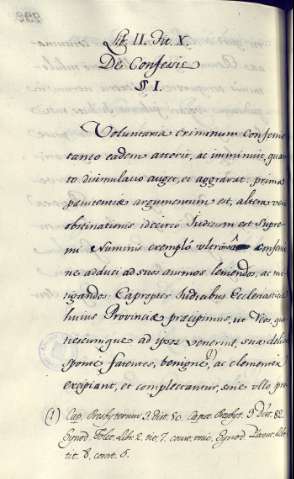 Lib. II. Tit. X.
De Confessis
§ I.
Voluntaria criminum Confessio
tanto eadem atterit, ac imminuit, quan
to dissimulatio auget, et aggravat: prima
penitentiæ argumentum est, altera vero
obstinationis idcirco Judicum est supre
mi Numinis exemplo
ne adduci ad suos animos leniendos, ac mi
tigandos. Capropter Judicibus Ecclesiasticis
huius Provinciæ præcipimus, ut Reos, qui
cumque ad ipsos venerint, sua delicta
sponte fatentes, benigne, ac clementer
excipiant, et complectantur, sine ullo
(1) Cap. Presbyterum
Synod. Tolet. lib. 2. Synod.
tit. 8. const. 6.